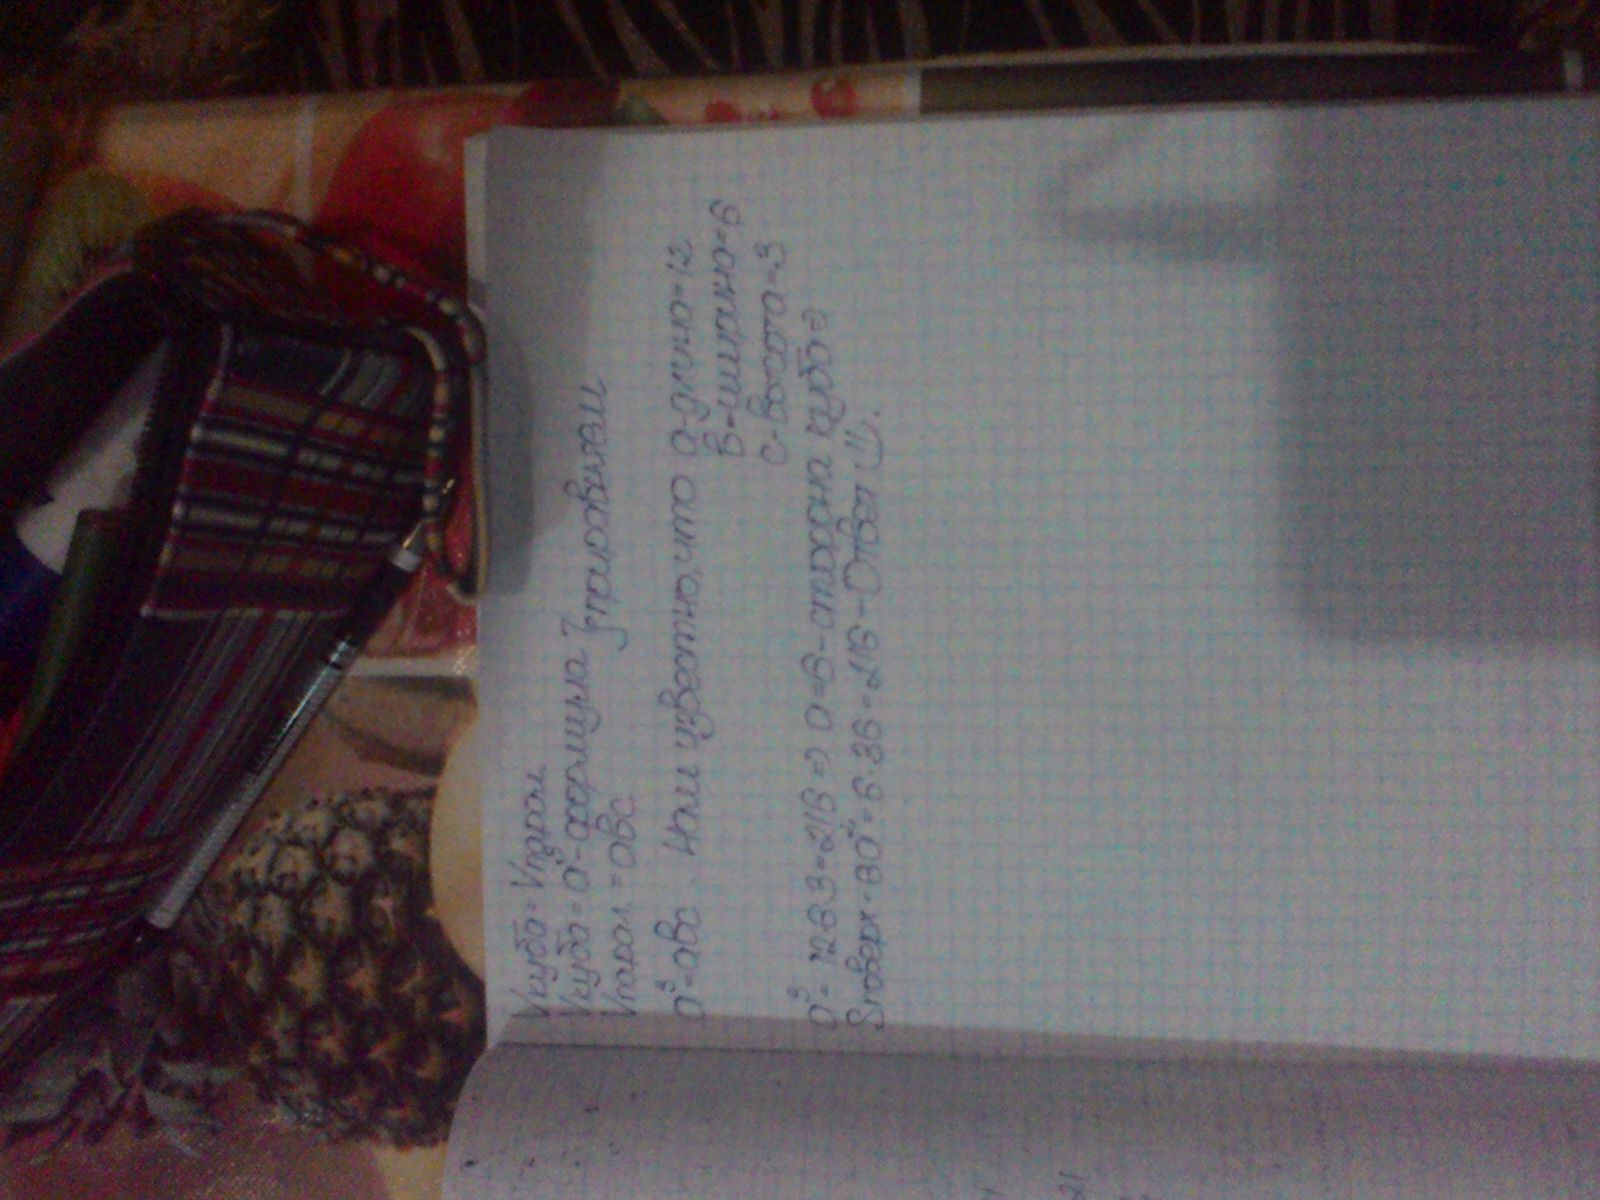 Vкуба = Vпарал.
Vкуба = a³ - формула } приравниваем
Vпарал. = авс
a³ = авс. Нам известно, что а-длина=12
в-ширина=6
с-высота=3
a³ = 12·6·3=216 => a=6 - сторона куба =>
Sповерх. = 6a² = 6·36 = 216 - Ответ :).